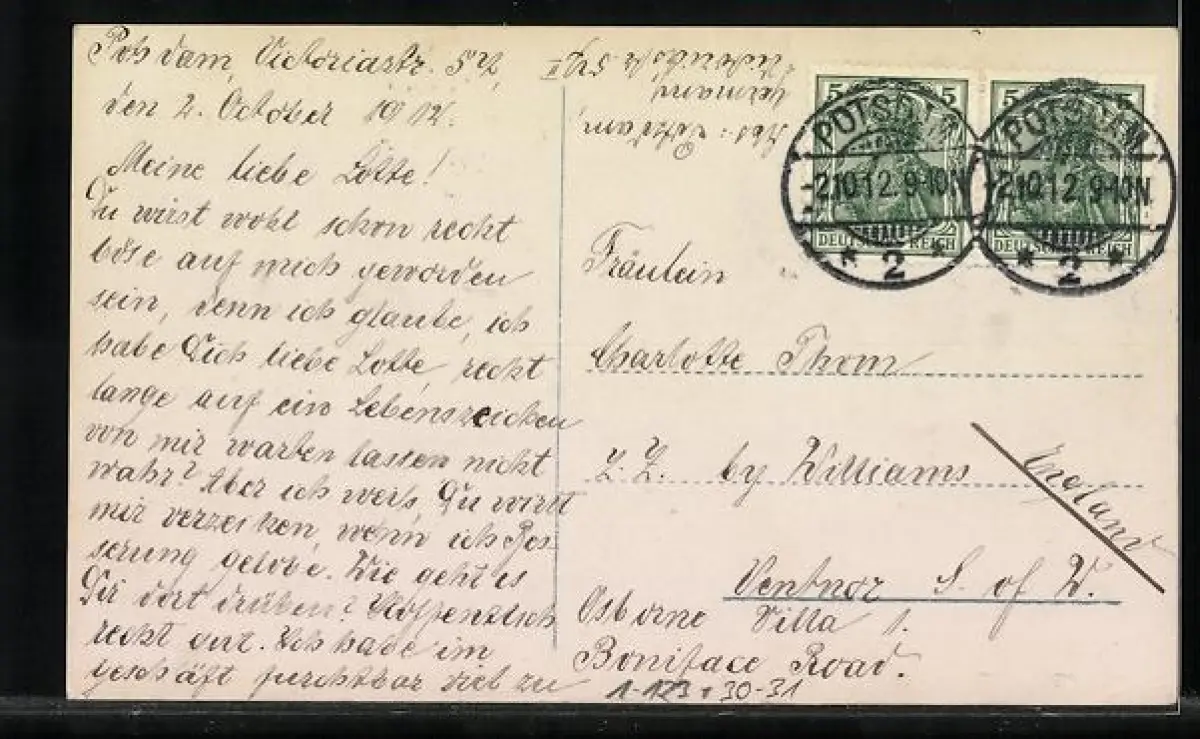 Potsdam, Victoriastr. 54,
den 2. October 1912.
Meine liebe Lotte!
Du wirst wohl schon recht
böse auf mich geworden
sein, denn ich glaube, ich
habe Dich liebe Lotte, recht
lange auf ein Lebenszeichen
von mir warten lassen nicht
wahr? Aber ich weis, Du wirst
mir verzeihen, wenn ich Bes-
serung gelobe. Wie geht es
Dir dort drüben? Hoffentlich
recht gut. Ich habe im
geschäft furchtbar viel zu
Abs: Potsdam,
Germany
POTSDAM
-2.10.12.9-10N
* 2 *
POTSDAM
-2.10.12.9-10N
* 2 *
5 5
DEUTSCHES REICH
5 5
DEUTSCHES REICH
Fräulein
Charlotte Thom
z. Z. by Williams
England
Ventnor I. of W.
Osborne Villa 1.
Boniface Road.
30-31